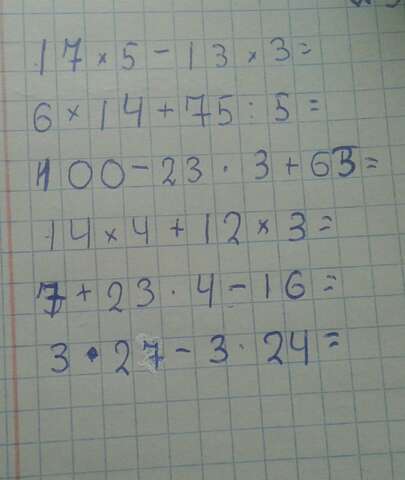 17 × 5 - 13 × 3 =
6 × 14 + 75 : 5 =
100 - 23 · 3 + 63 =
14 × 4 + 12 × 3 =
7 + 23 · 4 - 16 =
3 · 27 - 3 · 24 =